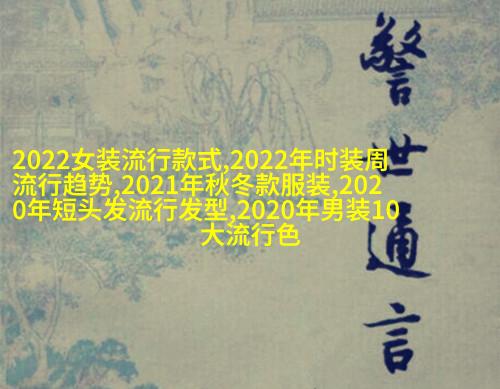 警世通言
2022女装流行款式,2022年时装周
流行趋势,2021年秋冬款服装,202
0年短头发流行发型,2020年男装10
大流行色